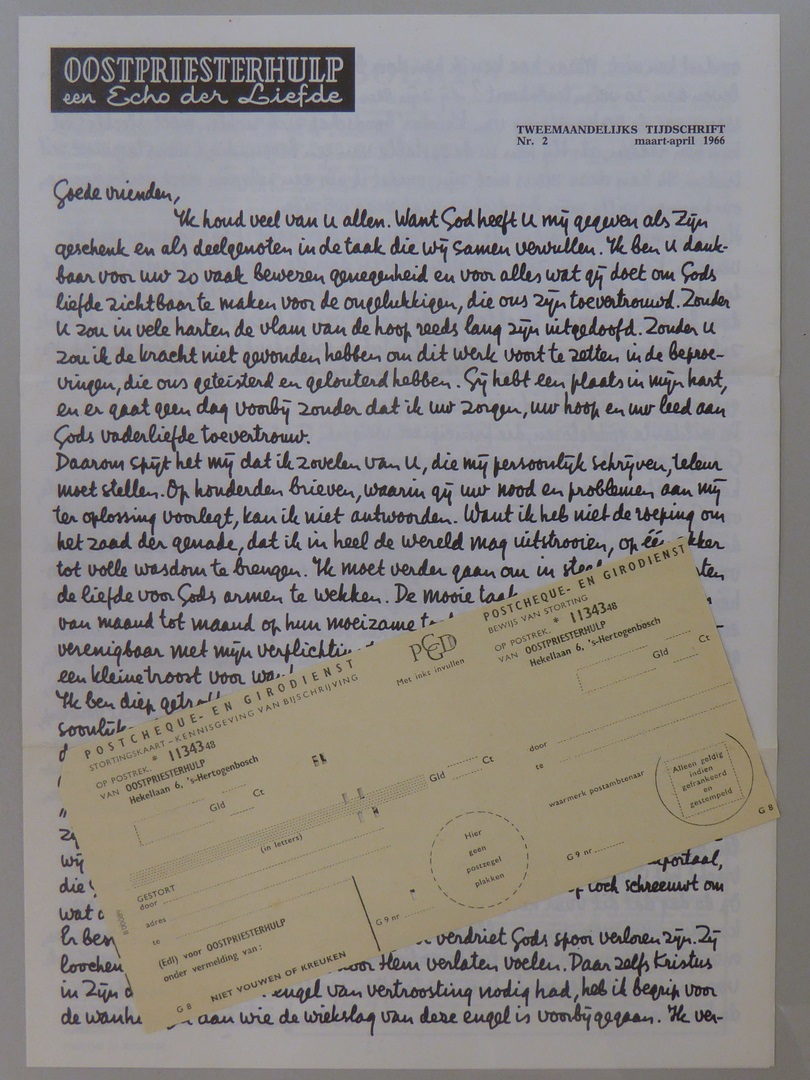 OOSTPRIESTERHULP
een Echo der Liefde
TWEEMAANDELIJKS TIJDSCHRIFT
Nr. 2 maart-april 1966
Goede vrienden,
Ik houd veel van U allen. Want God heeft U mij gegeven als Zijn
geschenk en als deelgenoten in de taak die wij samen vervullen. Ik ben U dank-
baar voor uw zo vaak bewezen genegenheid en voor alles wat gij doet om Gods
liefde zichtbaar te maken voor de ongelukkigen, die ons zijn toevertrouwd. Zonder
U zou in vele harten de vlam van de hoop reeds lang zijn uitgedoofd. Zonder U
zou ik de kracht niet gevonden hebben om dit werk voort te zetten in de beproe-
vingen, die ons geteisterd en gelouterd hebben. Gij hebt een plaats in mijn hart,
en er gaat geen dag voorbij zonder dat ik uw zorgen, uw hoop en uw leed aan
Gods vaderliefde toevertrouw.
Daarom spijt het mij dat ik zovelen van U, die mij persoonlijk schrijven, teleur
moet stellen. Op honderden brieven, waarin gij uw nood en problemen aan mij
ter oplossing voorlegt, kan ik niet antwoorden. Want ik heb niet de roeping om
het zaad der genade, dat ik in heel de wereld mag uitstrooien, op één
tot volle wasdom te brengen. Ik moet verder gaan om in
de liefde voor Gods armen te wekken. De mooie taak
van maand tot maand op hun moeizame
verenigbaar met mijn
een kleine troost voor
Ik ben diep
POSTCHEQUE- EN GIRODIENST
STORTINGSKAART - KENNISGEVING VAN BIJSCHRIJVING
OP POSTREK. * 1134348
VAN OOSTPRIESTERHULP
Hekellaan 6, 's-Hertogenbosch
Gld Ct
Gld Ct
(in letters)
GESTORT
door
adres
te
(Edl) voor OOSTPRIESTERHULP
onder vermelding van :
G 8 NIET VOUWEN OF KREUKEN
G 9 nr
PCGD
Met inkt invullen
Hier
geen
postzegel
plakken
POSTCHEQUE- EN GIRODIENST
BEWIJS VAN STORTING
OP POSTREK. * 1134348
VAN OOSTPRIESTERHULP
Hekellaan 6, 's-Hertogenbosch
Gld Ct
door
te
waarmerk postambtenaar
Alleen geldig
indien
gefrankeerd
en
gestempeld
G 9 nr
G 8
wij
die
toch schreeuwt om
wat
Er
verdriet Gods spoor verloren zijn. Zij
Hem verlaten voelen. Daar zelfs Kristus
in Zijn
engel van vertroosting nodig had, heb ik begrip voor
de
aan wie de wiekslag van deze engel is voorbijgegaan. Ik ver-